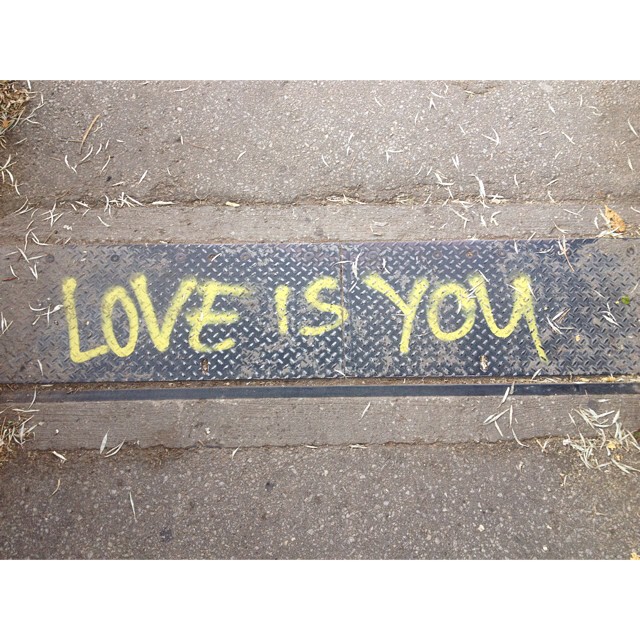 LOVE IS YOU